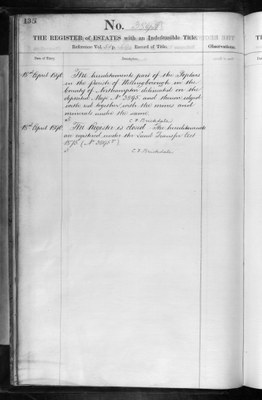 135
No.
THE REGISTER of ESTATES with an Indefeasible Title
Reference Vol. Record of Title.
Observations.
Date of Entry.
Description.
April 1898. The hereditaments part of the
in the Parish of Wellingborough in the
County of Northampton delineated on the
deposited Map No 3898 and thereon edged
with red together with the mines and
minerals under the same
C. F. Brickdale
April 1898. The Register is closed. The hereditaments
are registered under the Land Transfer Act
1875 (No
C. F. Brickdale